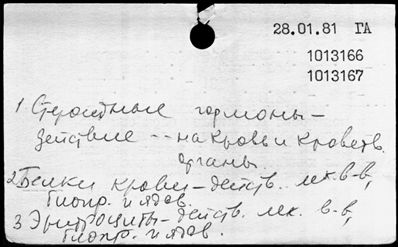 28.01.81 ГА
1013166
1013167
1 Стероидные гормоны –
действие -- на кровь и кроветв.
органы
2 Белки крови – действ. лек. в-в,
биопр. и ядов.
3 Эритроциты – действ. лек. в-в,
биопр. и ядов.